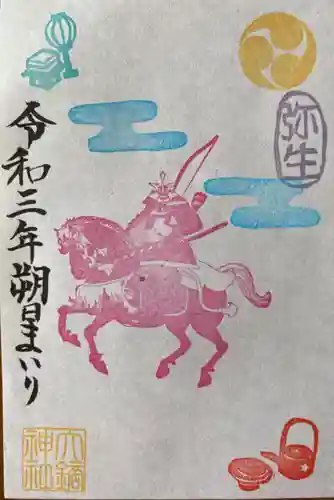 弥生
令和三年朔日まいり
大鏑
神社